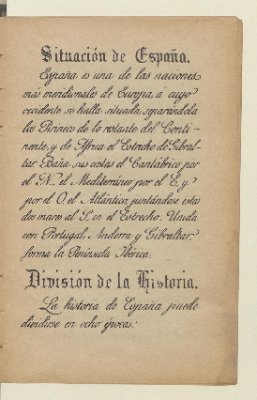 Situación de España.
España es una de las naciones
más meridionales de Europa, á cuyo
occidente se halla situada, separándola
los Pirineos de lo restante del Conti-
nente, y de África el Estrecho de Gibral-
tar. Baña sus costas el Cantábrico por
el N., el Mediterráneo por el E. y
por el O. el Atlántico, juntándose estos
dos mares al S. en el Estrecho. Unida
con Portugal, Andorra y Gibraltar,
forma la Península Ibérica.
División de la Historia.
La historia de España puede
dividirse en ocho épocas: